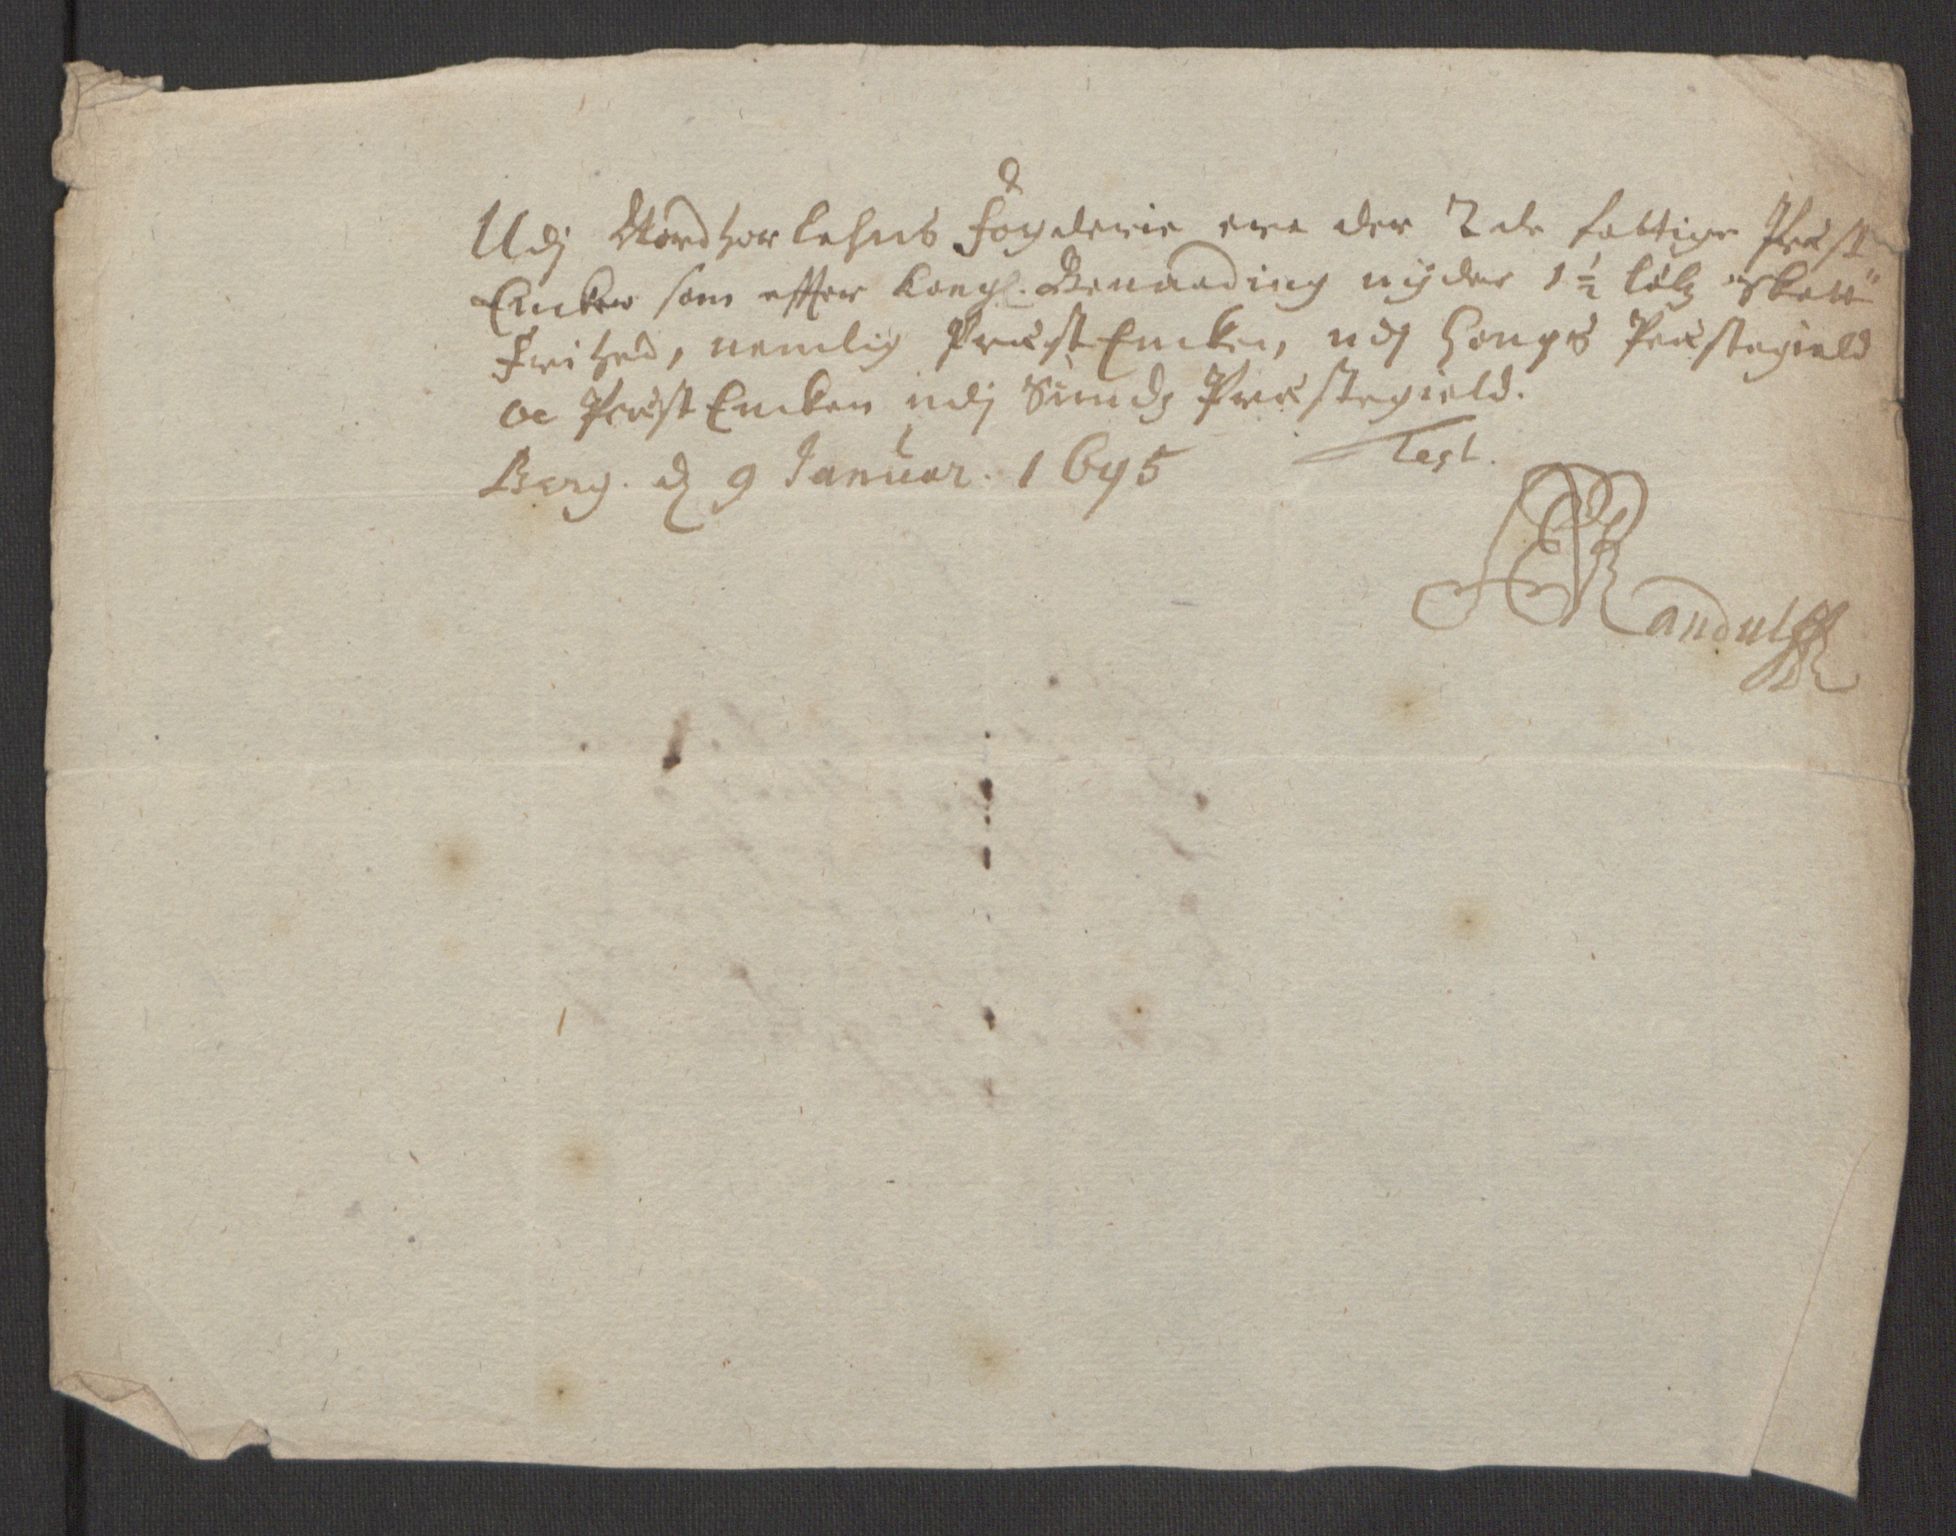 Udj Nordhorlehns Fogderie ere der 2de fattige Præst
Encker som effter Kongl. Benaading nyder 1½ lølz Skatte
Frihed, nemlig Præst Encken, udj Hougs Præstegield
oc Præst Encken udj Sunds Præstegield.
Berg. d 9 Januar. 1695 Test.
Randulff